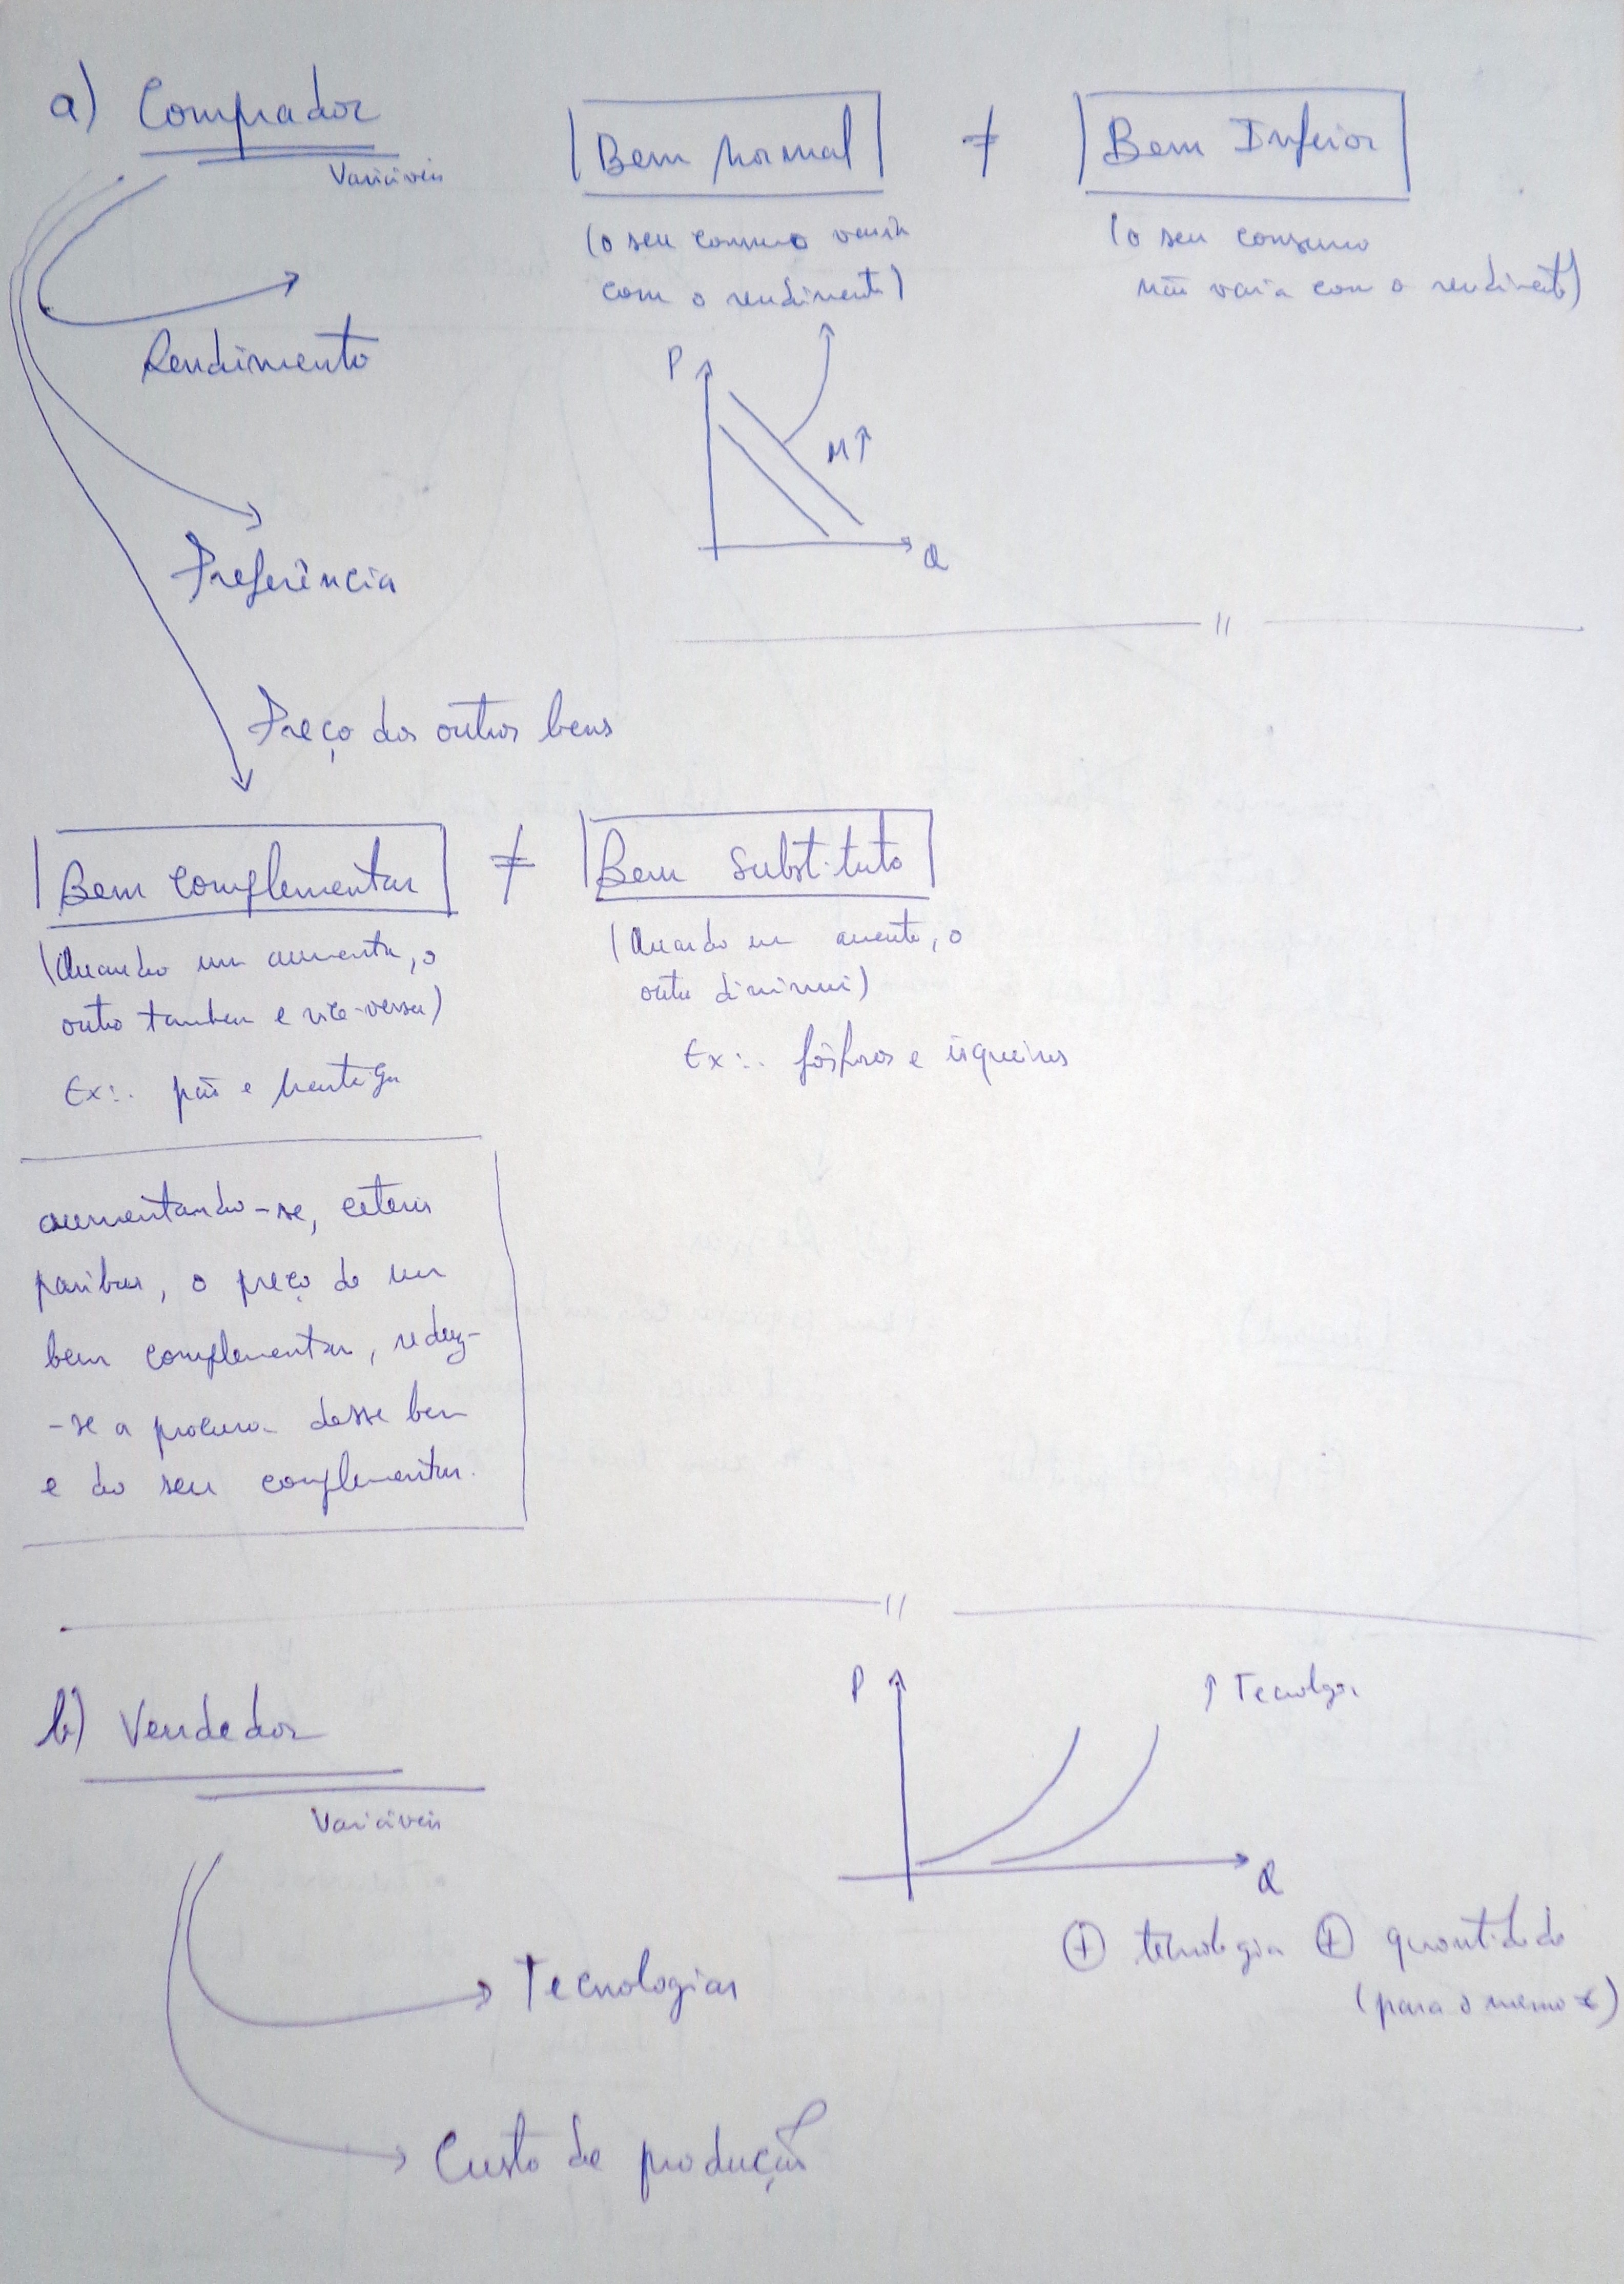 a) Comprador
Variáveis
Rendimento
Preferência
Preço dos outros bens
Bem normal ≠ Bem Inferior
(o seu consumo varia
com o rendimento)
(o seu consumo
não varia com o rendimento)
P
M↑
Q
//
Bem complementar ≠ Bem substituto
(Quando um aumenta, o
outro tambem e vice-versa)
Ex:. pão e manteiga
(Quando um aumenta, o
outro diminui)
Ex:. fósforos e isqueiros
aumentando-se, ceteris
paribus, o preço de um
bem complementar, reduz-
-se a procura desse bem
e do seu complementar.
//
b) Vendedor
Variáveis
Tecnologias
Custo de produção
P
↑ Tecnologia
Q
⊕ tecnologia ⊕ quantidade
(para o mesmo €)